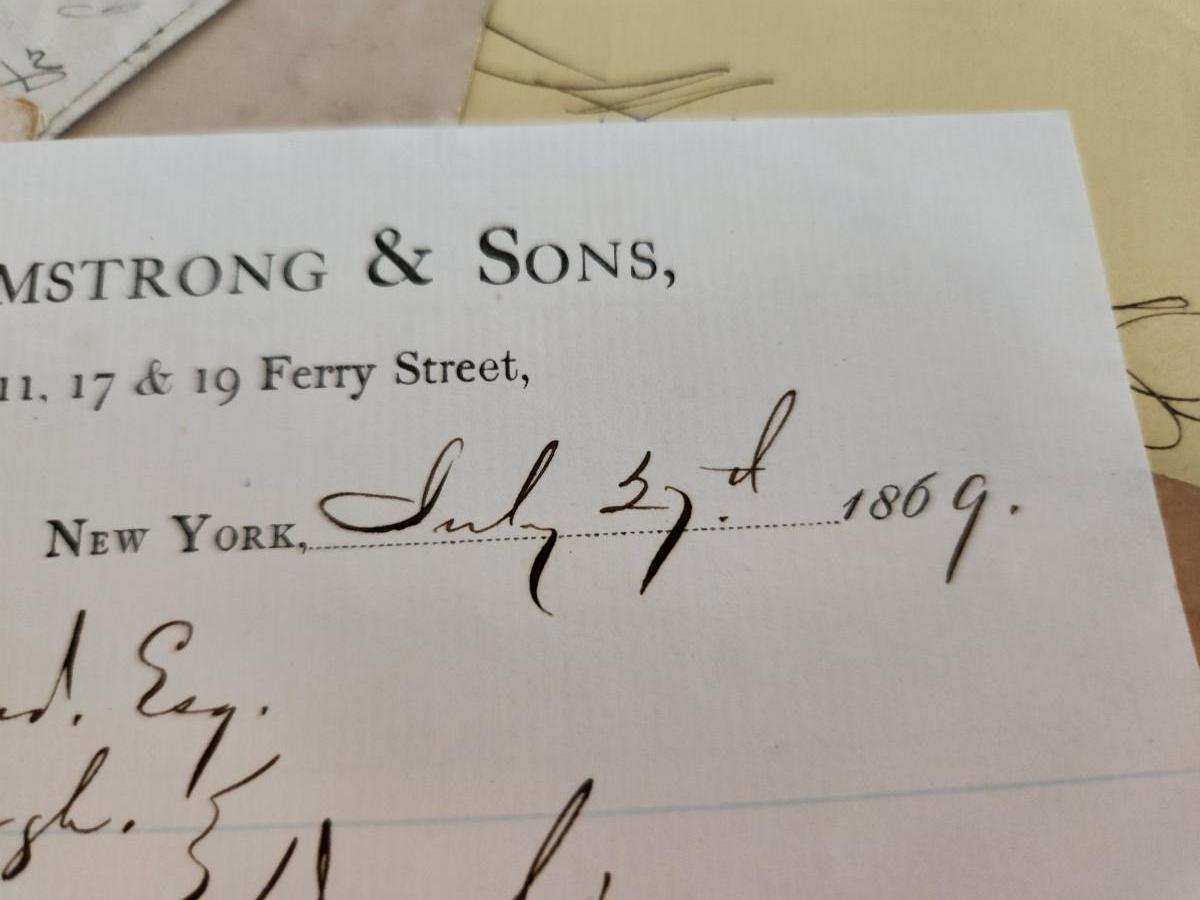 MSTRONG & SONS,
11, 17 & 19 Ferry Street,
NEW YORK, July 27.d 1869.
d. Esq.
gh.